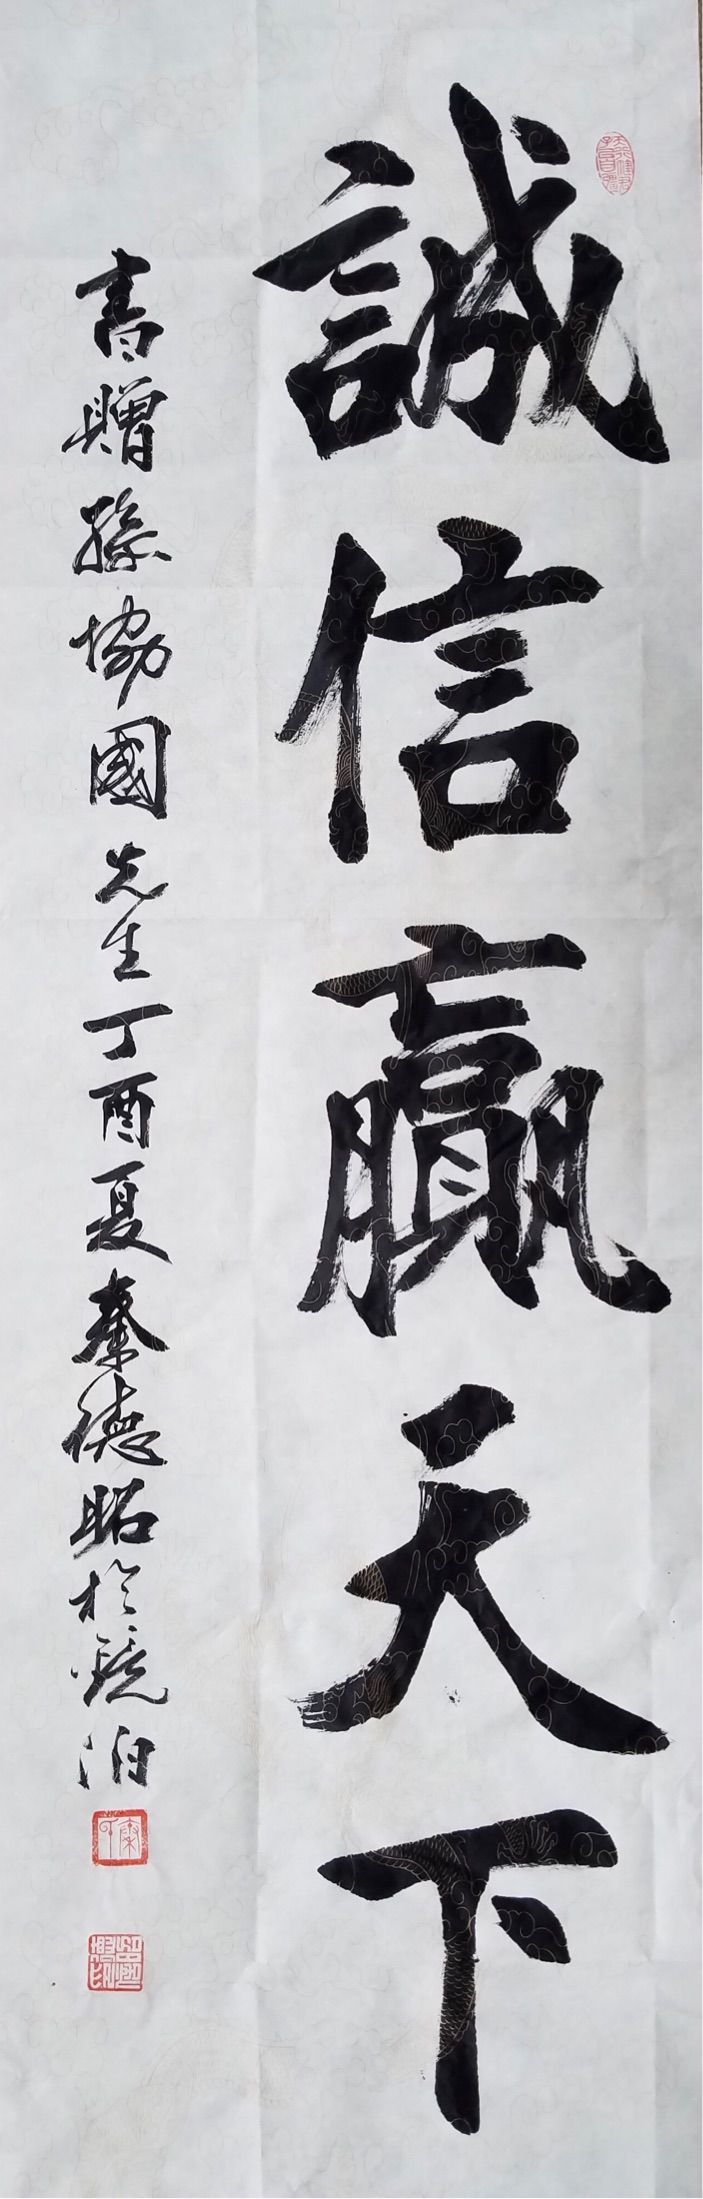 誠信贏天下
書贈孫協國先生丁酉夏秦德昭於鏡泊